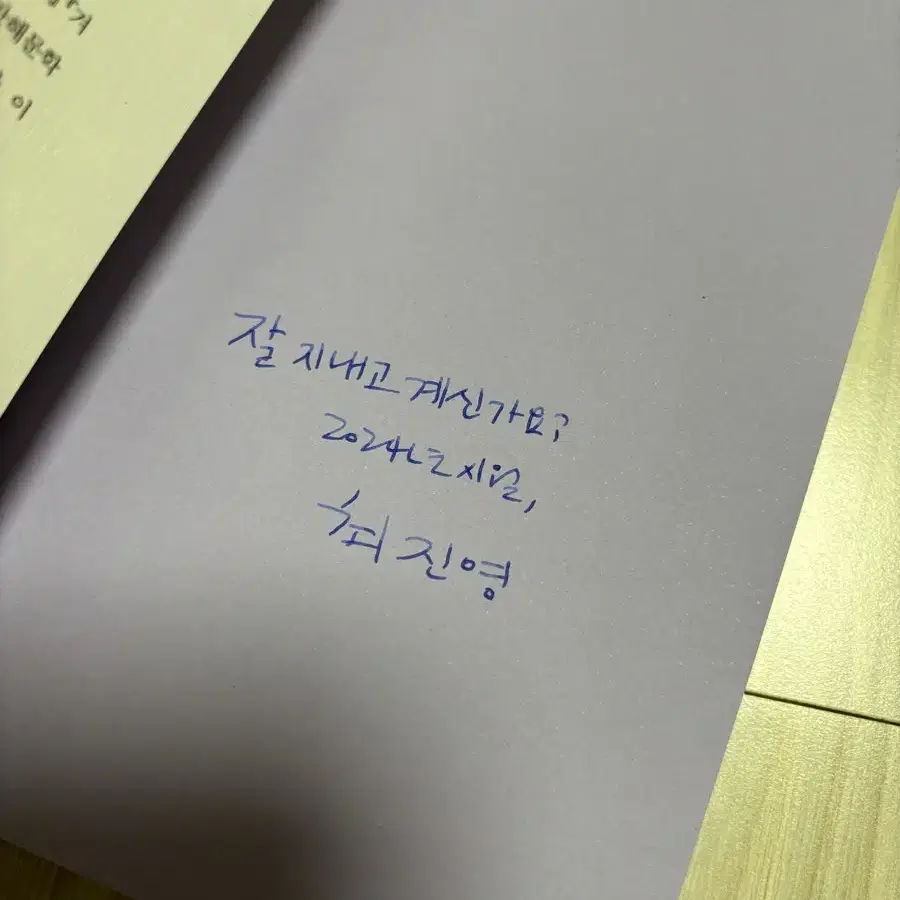 해문학
이
잘 지내고 계신가요?
2024년 시월,
최진영